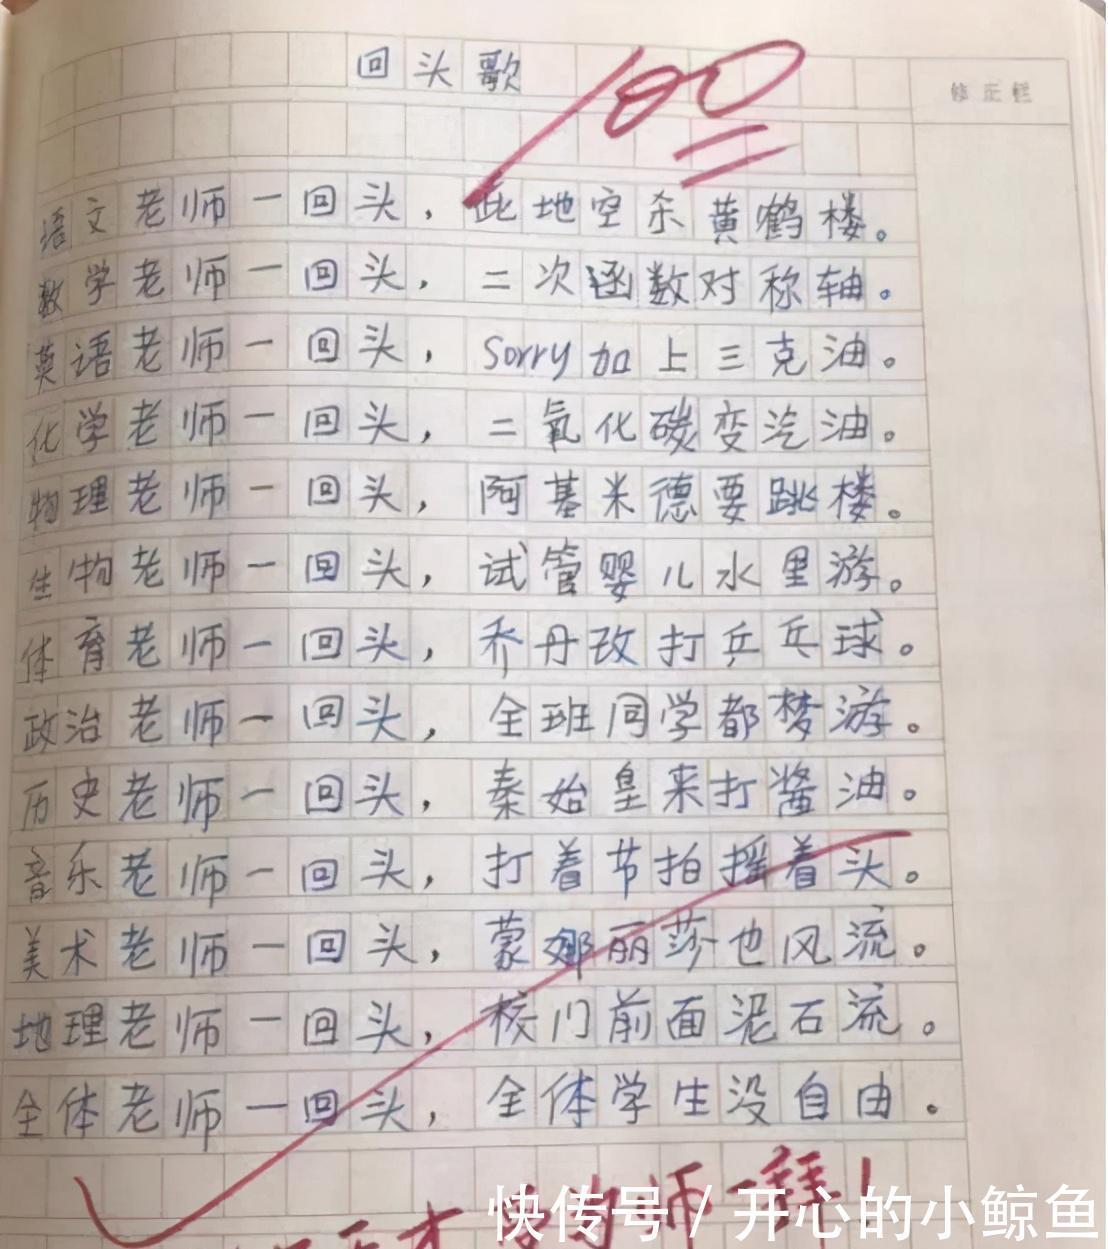 回头歌
100
修正栏
语文老师一回头，此地空杀黄鹤楼。
数学老师一回头，二次函数对称轴。
英语老师一回头，Sorry加上三克油。
化学老师一回头，二氧化碳变汽油。
物理老师一回头，阿基米德要跳楼。
生物老师一回头，试管婴儿水里游。
体育老师一回头，乔丹改打乒乓球。
政治老师一回头，全班同学都梦游。
历史老师一回头，秦始皇来打酱油。
音乐老师一回头，打着节拍摇着头。
美术老师一回头，蒙娜丽莎也风流。
地理老师一回头，校门前面泥石流。
全体老师一回头，全体学生没自由。
师一拜！
快传号/开心的小鲸鱼